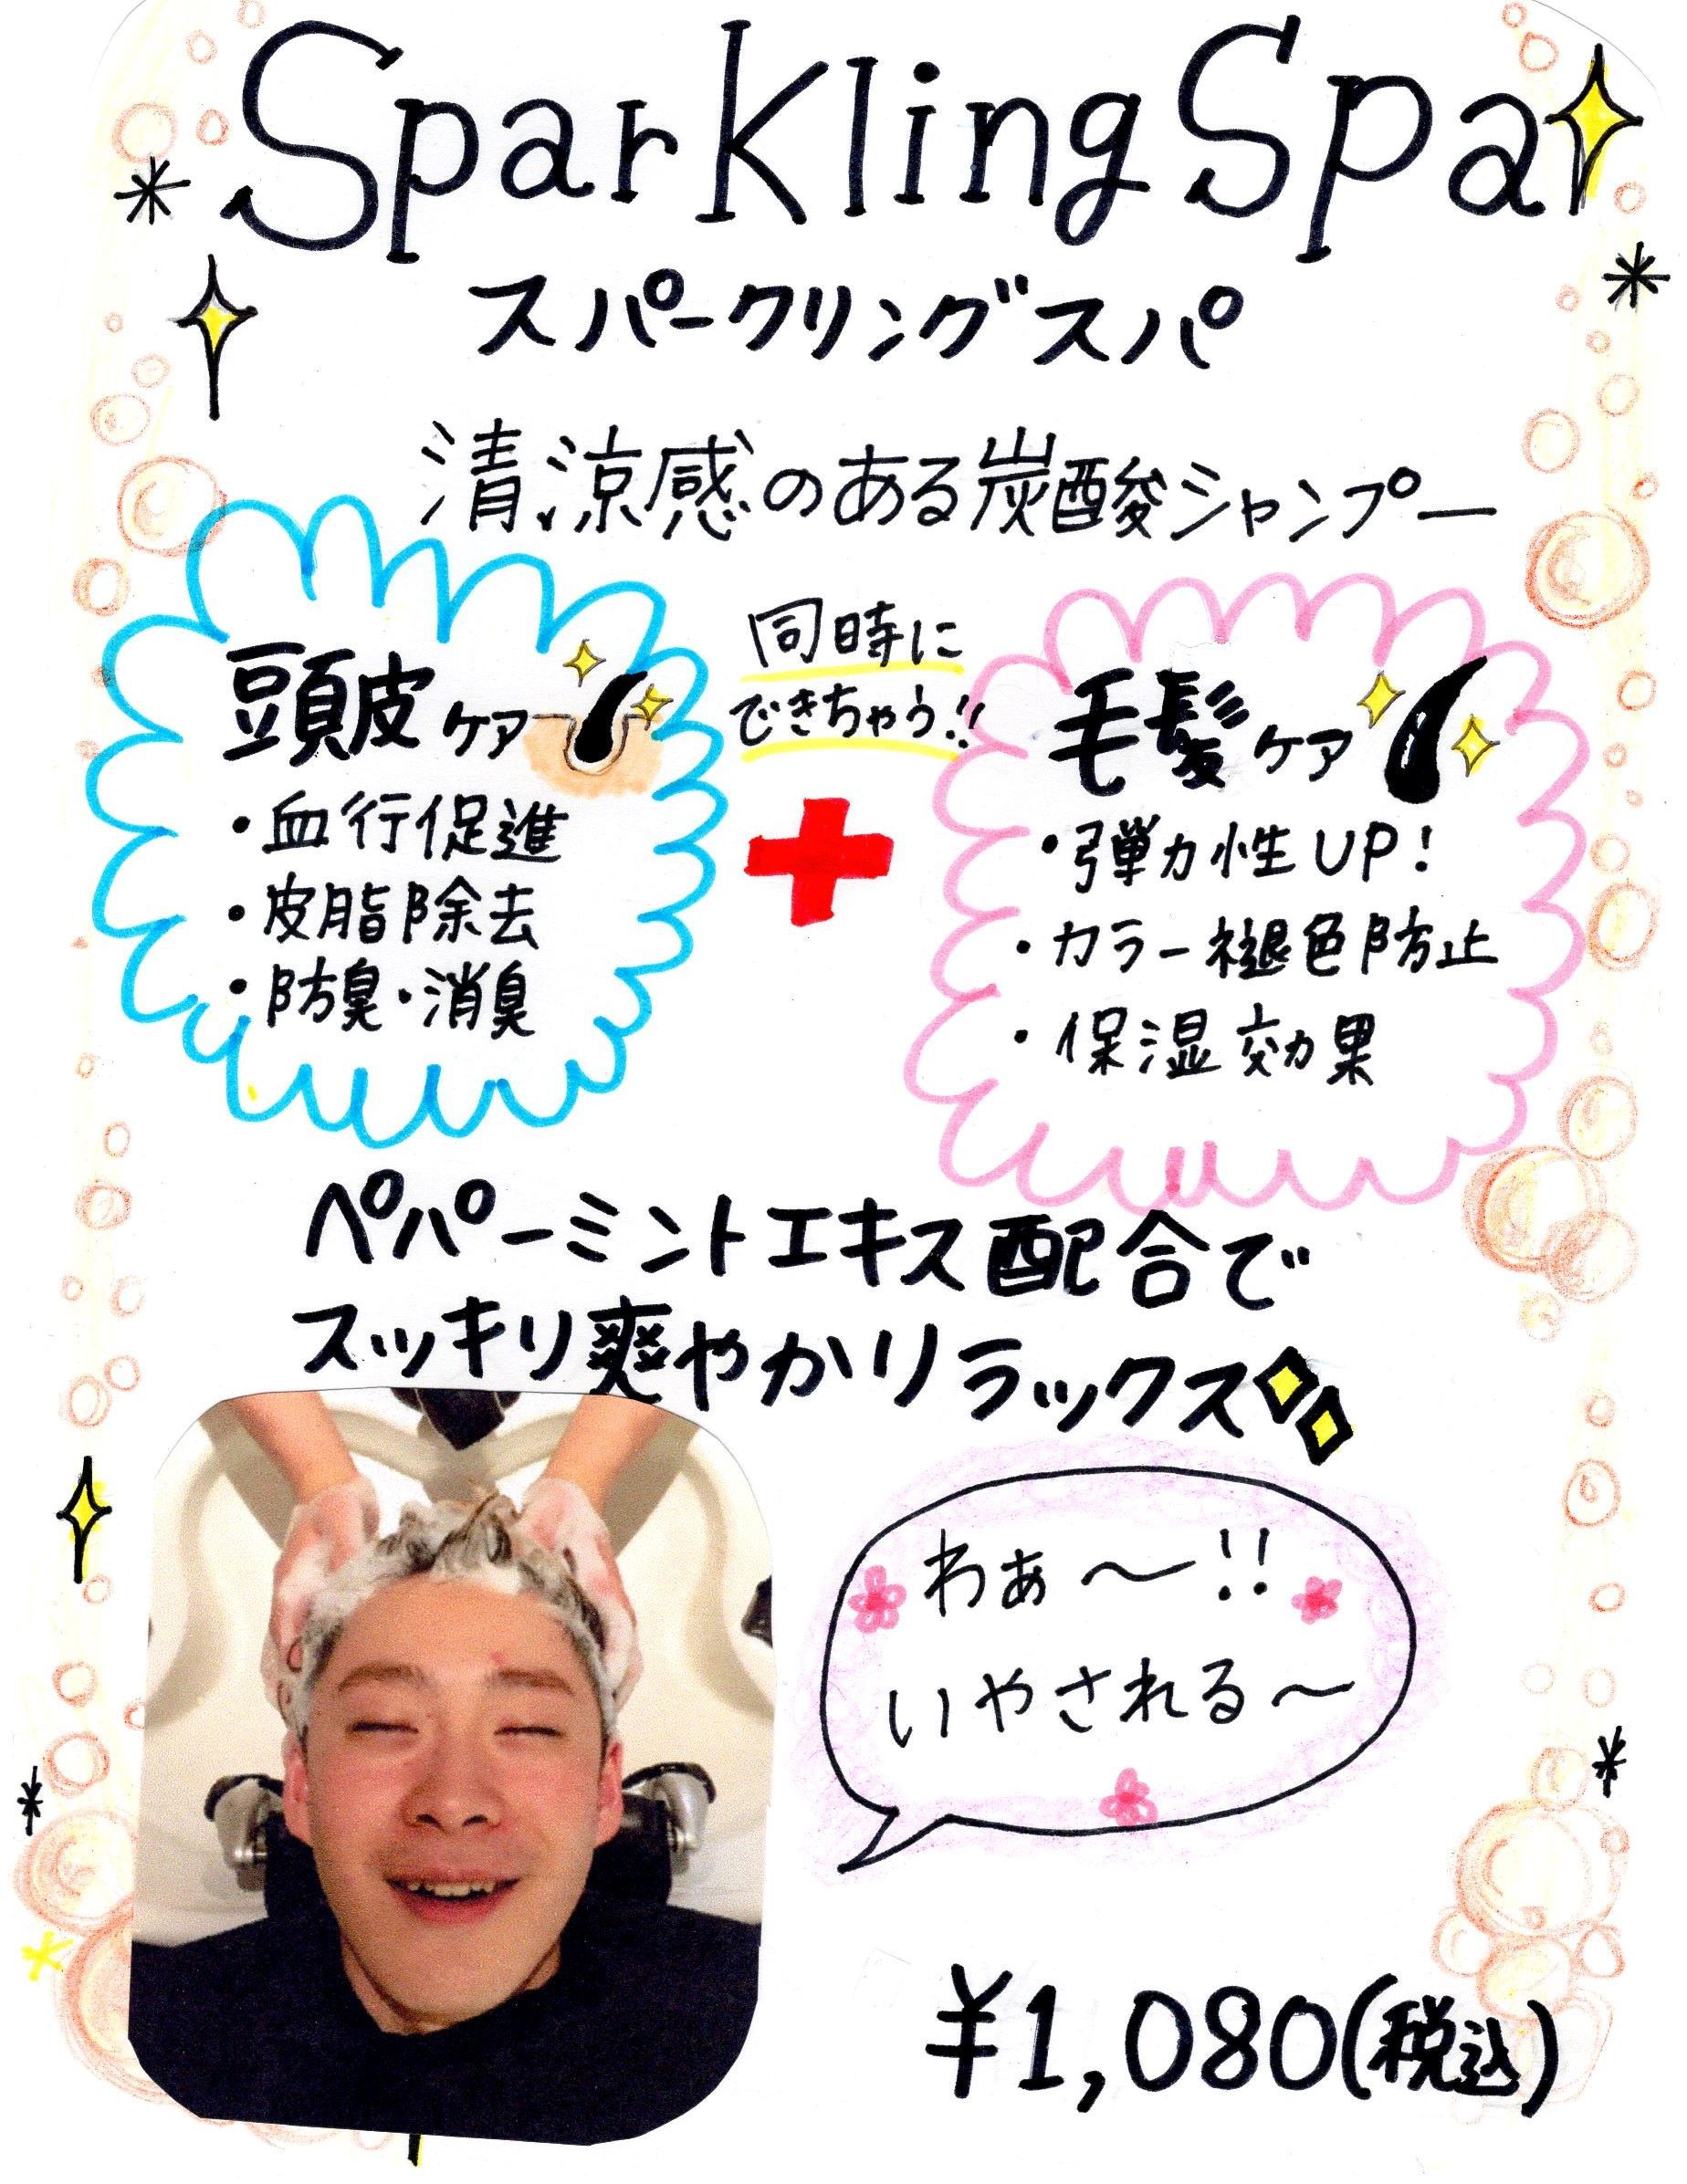 Sparkling Spa
スパークリングスパ
清涼感のある炭酸シャンプー
頭皮ケア
・血行促進
・皮脂除去
・防臭・消臭
同時に
できちゃう!!
毛髪ケア
・弾力性UP!
・カラー褪色防止
・保湿効果
ペパーミントエキス配合で
スッキリ爽やかリラックス
わぁ～!!
いやされる～
¥1,080(税込)